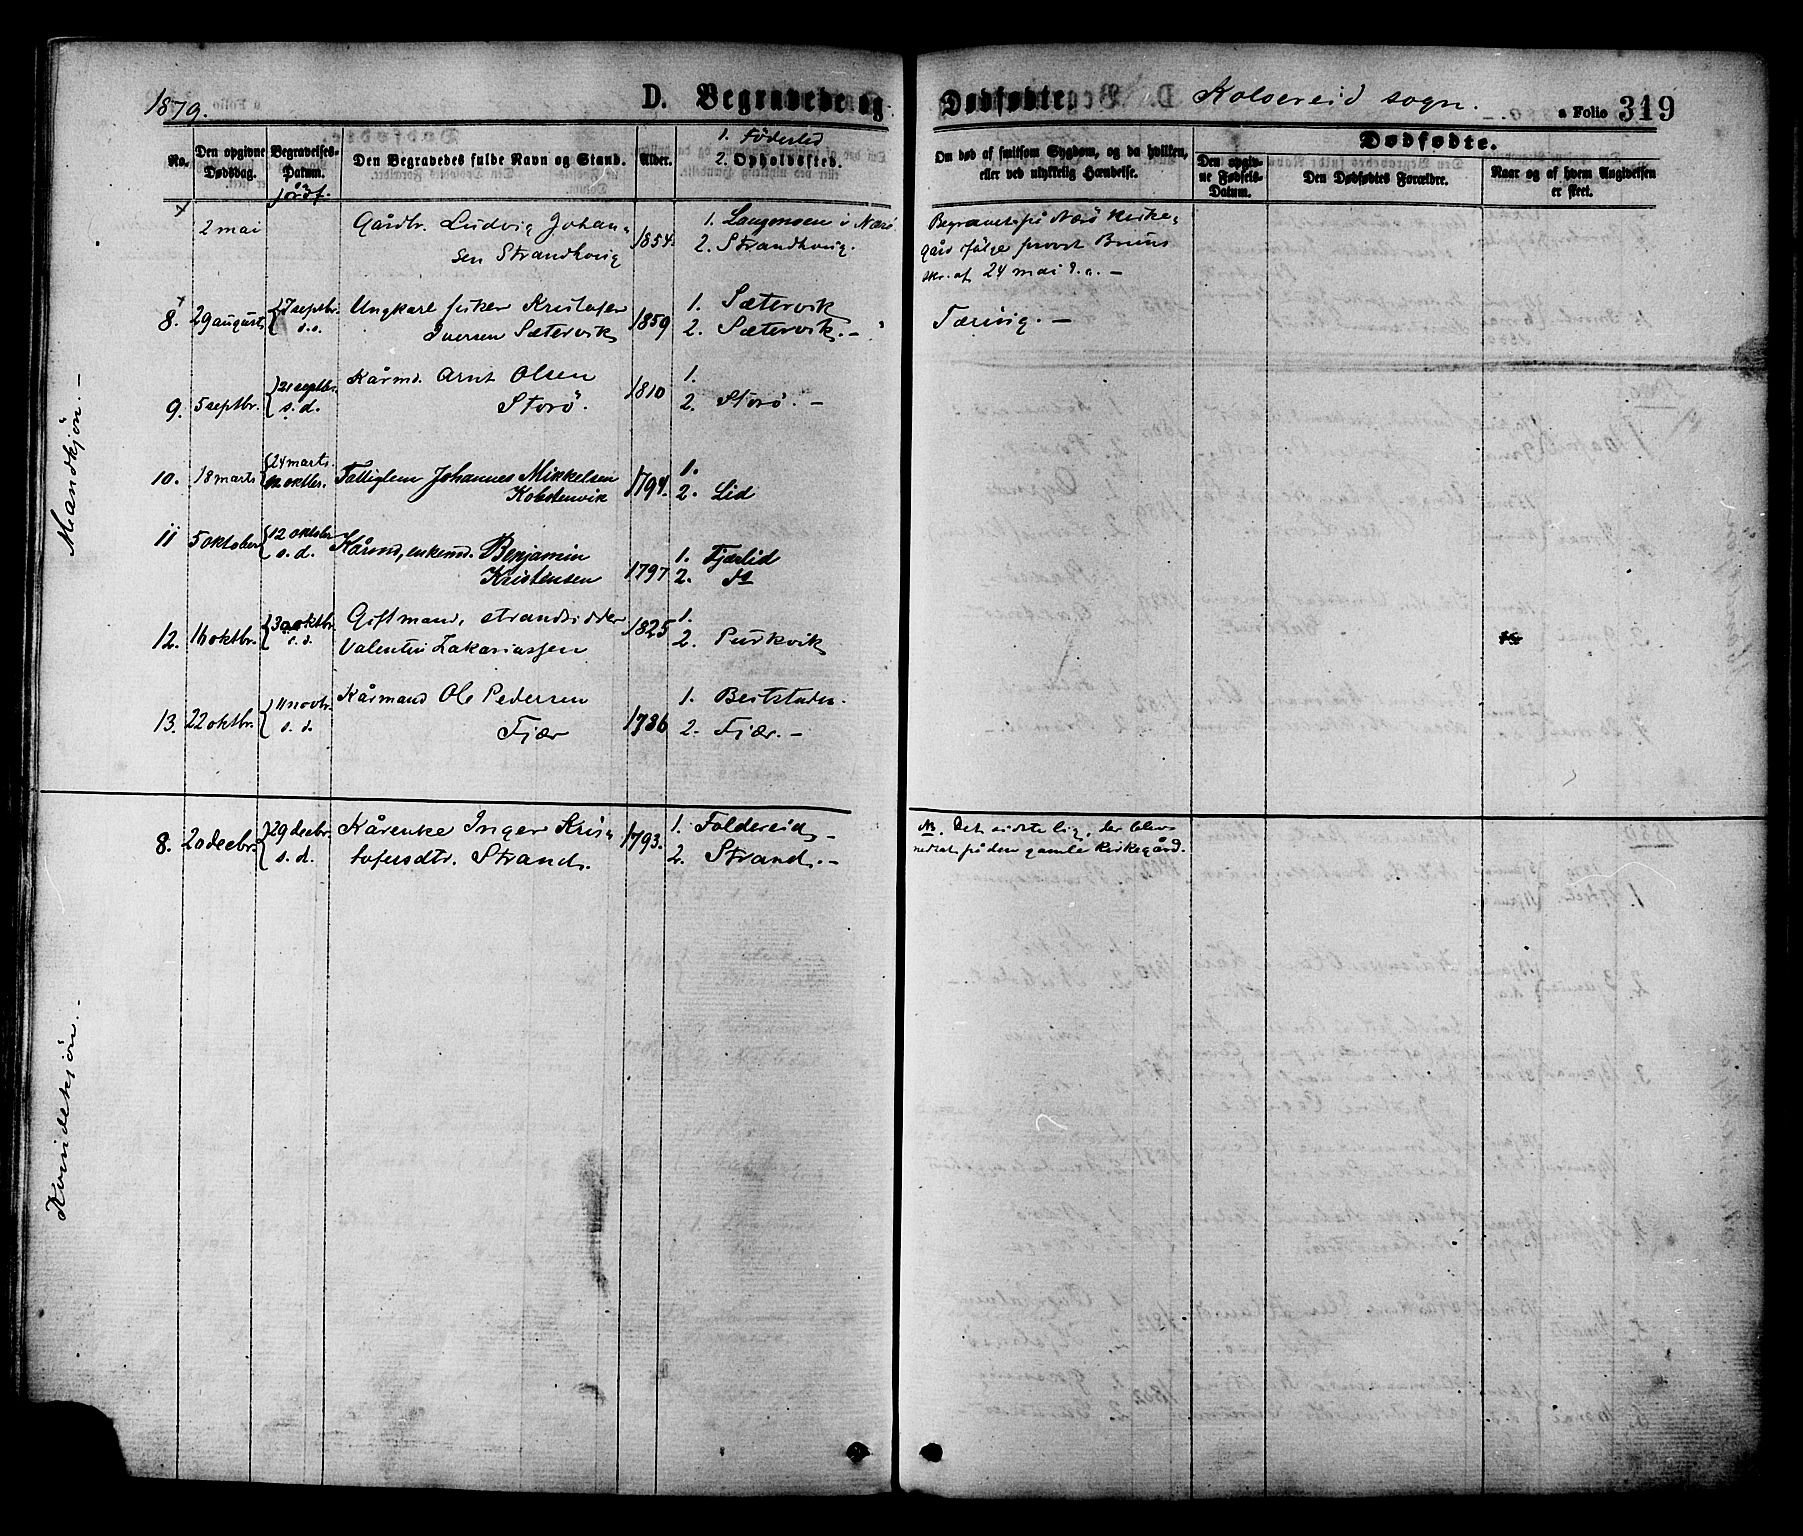 1879.
D. Begravede og Dødfødte. Kolvereid sogn. a Folio 319
No. Den opgivne Dødsdag. Begravelses-Datum. jordf. Den Begravedes fulde Navn og Stand. Alder. 1. Födested 2. Opholdssted. Om død af smitsom Sygdom, og da hvilken, eller ved ulykkelig Hændelse. Dødfødte. Den opgivne Fødsels-Datum. Den Dødfødtes Forældre. Naar og af hvem Angivelsen er skeet.
Mandkjön. —
2 mai Gårdbr. Ludvig Johan- 1854 1. i Nærö Begravet på Nærö kirke-
sen Strandhvig 2. Strandhvig. gård ifölge provst Bruns
skr. af 24 mai d. a. —
8. 29 august 7 septbr. Ungkarl fisker Kristofer 1859 1. Sætervik Tæring. —
s. d. Iversen Sætervik 2. Sætervik. —
9. 5 septbr. 21 septbr. Kårmd. Arnt Olsen 1810 1.
s. d. Storö. 2. Storö. —
10. 18 marts 24 marts Fattiglem Johannes Mikkelsen 1794. 1.
12 oktbr. 2. Lid
11 5 oktober 12 oktobr Kårmd, enkemd. Benjamin 1797 1. Fjærlid
s. d. Kristensen 2. do
12. 16 oktbr. 30 oktbr. Giftmand, strandsidder 1825 1.
s. d. Valentin Zakariassen 2. Purkvik
13. 22 oktbr. 11 novbr. Kårmand Ole Pedersen 1786 1. Beitstaden.
s. d. Fjær 2. Fjær. —
Kvindekjön. —
8. 20 decbr. 29 decbr. Kårenke Inger Kris- 1793. 1. Foldereid — NB. Det sidste lig, der blev
s. d. tofersdtr. Strand. 2. Strand. — nedsat på den gamle kirkegård.